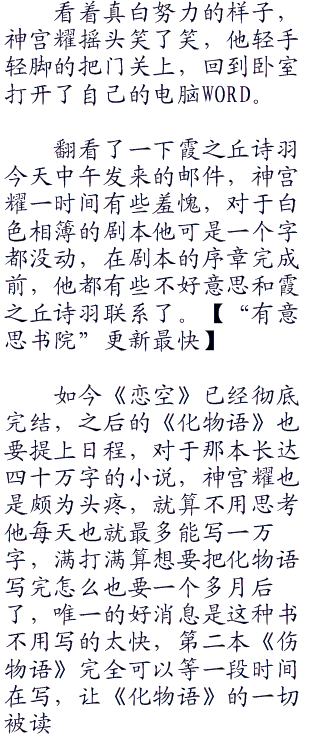 看着真白努力的样子，
神宫耀摇头笑了笑，他轻手
轻脚的把门关上，回到卧室
打开了自己的电脑WORD。
翻看了一下霞之丘诗羽
今天中午发来的邮件，神宫
耀一时间有些羞愧，对于白
色相簿的剧本他可是一个字
都没动，在剧本的序章完成
前，他都有些不好意思和霞
之丘诗羽联系了。【“有意
思书院”更新最快】
如今《恋空》已经彻底
完结，之后的《化物语》也
要提上日程，对于那本长达
四十万字的小说，神宫耀也
是颇为头疼，就算不用思考
他每天也就最多能写一万
字，满打满算想要把化物语
写完怎么也要一个多月后
了，唯一的好消息是这种书
不用写的太快，第二本《伤
物语》完全可以等一段时间
在写，让《化物语》的一切
被读